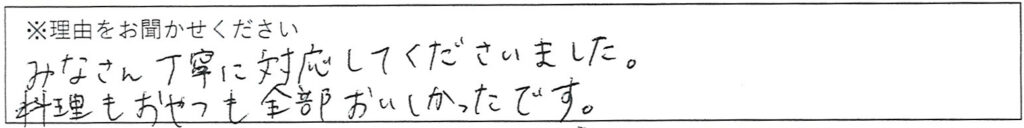 ※理由をお聞かせください
みなさん丁寧に対応してくださいました。
料理もおやつも全部おいしかったです。